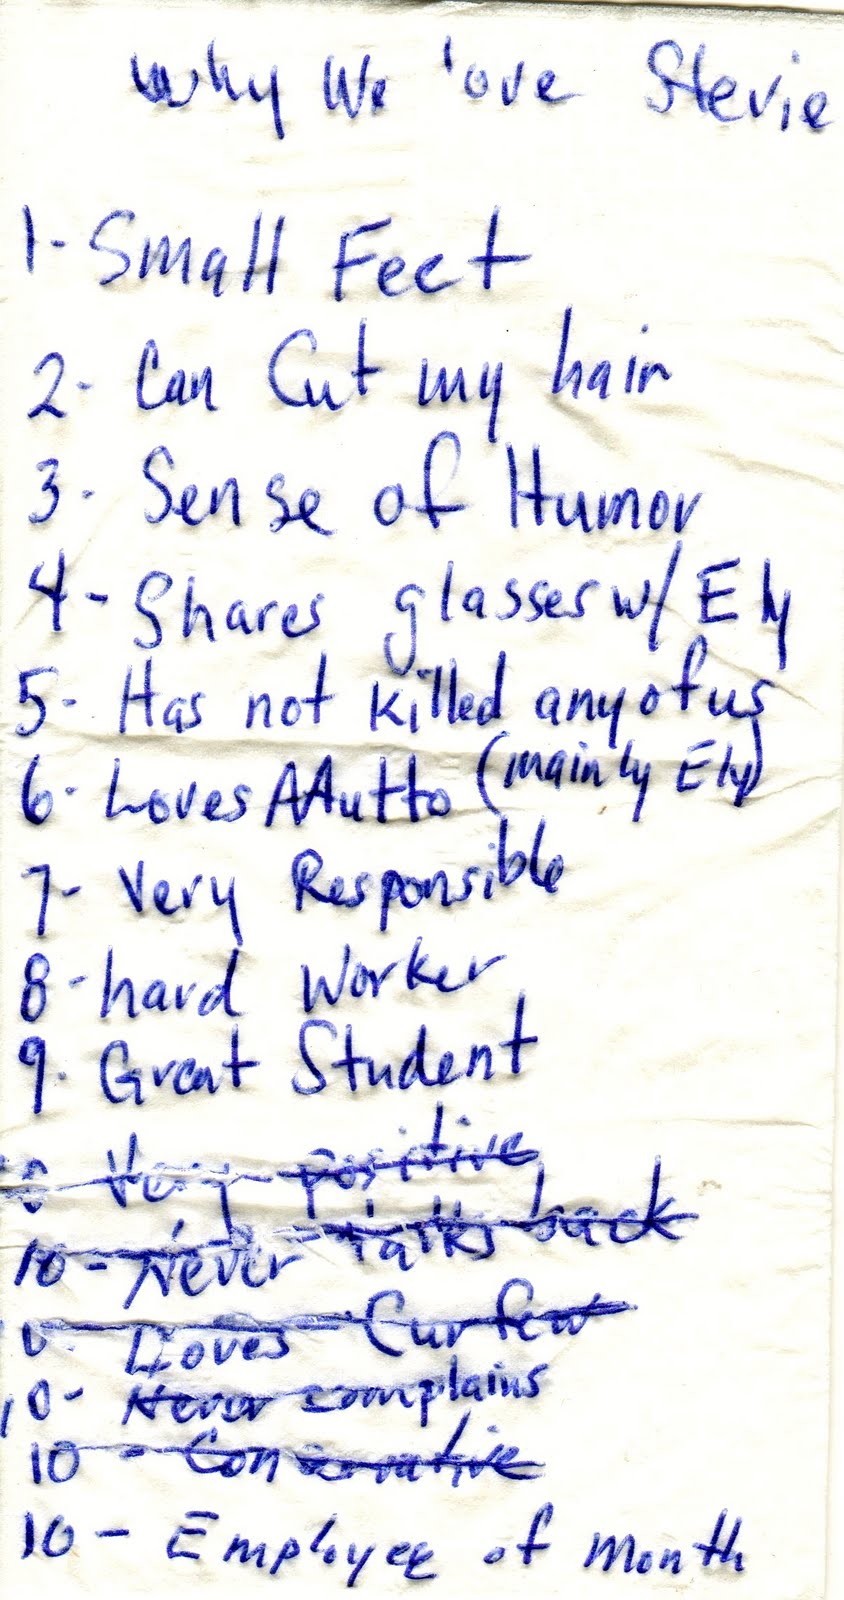 Why We love Stevie
1- Small Feet
2- Can Cut my hair
3- Sense of Humor
4- Shares glasses w/ Ely
5- Has not killed any of us
6- Loves Mutto (mainly Ely)
7- Very Responsible
8- hard Worker
9. Great Student
Very positive
10- Never talks back
Loves Curfew
10- Never complains
10- Conservative
10- Employee of month